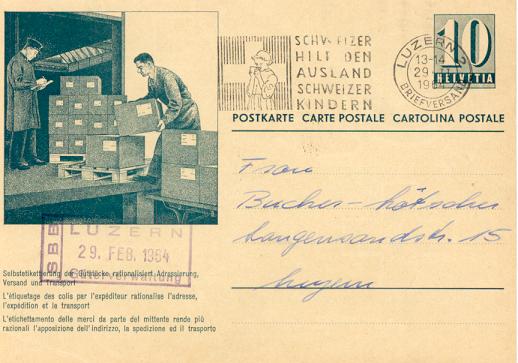 SCHWEIZER
HILF DEN
AUSLAND
SCHWEIZER
KINDERN
LUZERN 2
13-14
29. II.
BRIEFVERSAND
10
HELVETIA
POSTKARTE CARTE POSTALE CARTOLINA POSTALE
Frau
Bucher-
Langensandstr. 15
Luzern
SBB
LUZERN
29. FEB. 1964
Güterverwaltung
Selbstetikettierung der Gutstücke rationalisiert Adressierung,
Versand und Transport
L'étiquetage des colis par l'expéditeur rationalise l'adresse,
l'expédition et le transport
L'etichettamento delle merci da parte del mittente rende più
razionali l'apposizione dell'indirizzo, la spedizione ed il trasporto